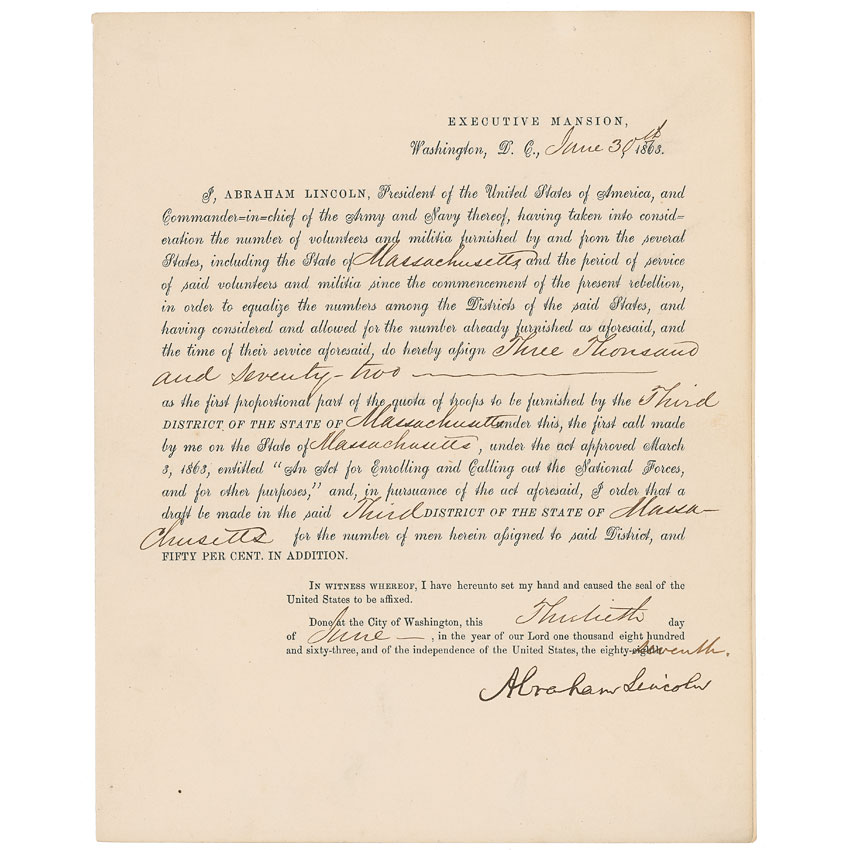 EXECUTIVE MANSION,
Washington, D. C., June 30th 1863.
I, ABRAHAM LINCOLN, President of the United States of America, and
Commander=in=chief of the Army and Navy thereof, having taken into consid=
eration the number of volunteers and militia furnished by and from the several
States, including the State of Massachusetts, and the period of service
of said volunteers and militia since the commencement of the present rebellion,
in order to equalize the numbers among the Districts of the said States, and
having considered and allowed for the number already furnished as aforesaid, and
the time of their service aforesaid, do hereby aſsign Three Thousand
and seventy-two
as the first proportional part of the quota of troops to be furnished by the Third
DISTRICT OF THE STATE OF Massachusetts under this, the first call made
by me on the State of Massachusetts, under the act approved March
3, 1863, entitled "An Act for Enrolling and Calling out the National Forces,
and for other purposes," and, in pursuance of the act aforesaid, I order that a
draft be made in the said Third DISTRICT OF THE STATE OF Massa-
chusetts for the number of men herein aſsigned to said District, and
FIFTY PER CENT. IN ADDITION.
IN WITNESS WHEREOF, I have hereunto set my hand and caused the seal of the
United States to be affixed.
Done at the City of Washington, this Thirtieth day
of June —, in the year of our Lord one thousand eight hundred
and sixty-three, and of the independence of the United States, the eighty-eighth seventh.
Abraham Lincoln